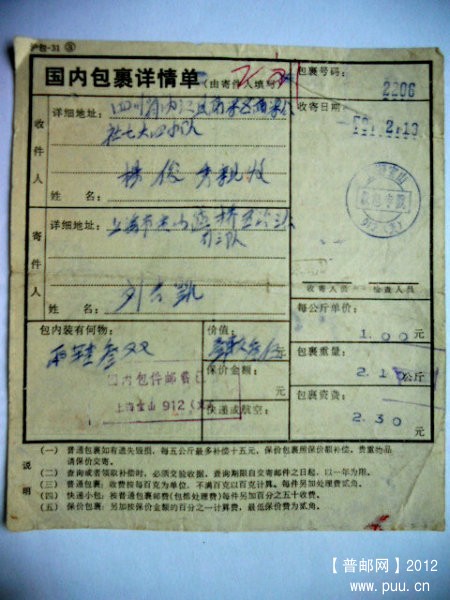 沪包-31 ③
国内包裹详情单(由寄件人填写)
包裹号码:
2206
收件人
详细地址: 四川省内江
社七大四小队
杨俊秀亲收
姓名:
收寄日期:
寄件人
详细地址: 上海市
姓名: 刘
收寄人员 检查人员
每公斤单价:
1.00元
包内装有何物:
雨鞋叁双
价值:
元
包裹重量:
公斤
国内包件邮费
上海宝山 912
保价金额:
元
快递或航空:
包裹资费:
2.30元
说明
(一) 普通包裹如有遗失毁损,每五公斤最多补偿十五元,保价包裹所保价额补偿,贵重物品
请保价交寄。
(二) 查询或者领取补偿时,必须交验收据。查询期限自交寄邮件之日起,以一年为用。
(三) 普通包裹:收费按每百克为单位,不满百克以百克计算。每件另加处理费贰角。
(四) 快递小包:按普通包裹邮费(包括处理费)每件另加百分之五十收费。
(五) 保价包裹:另加按保价金额的百分之一计算费,最低保价费为贰角。
【普邮网】2012
www.puu.cn